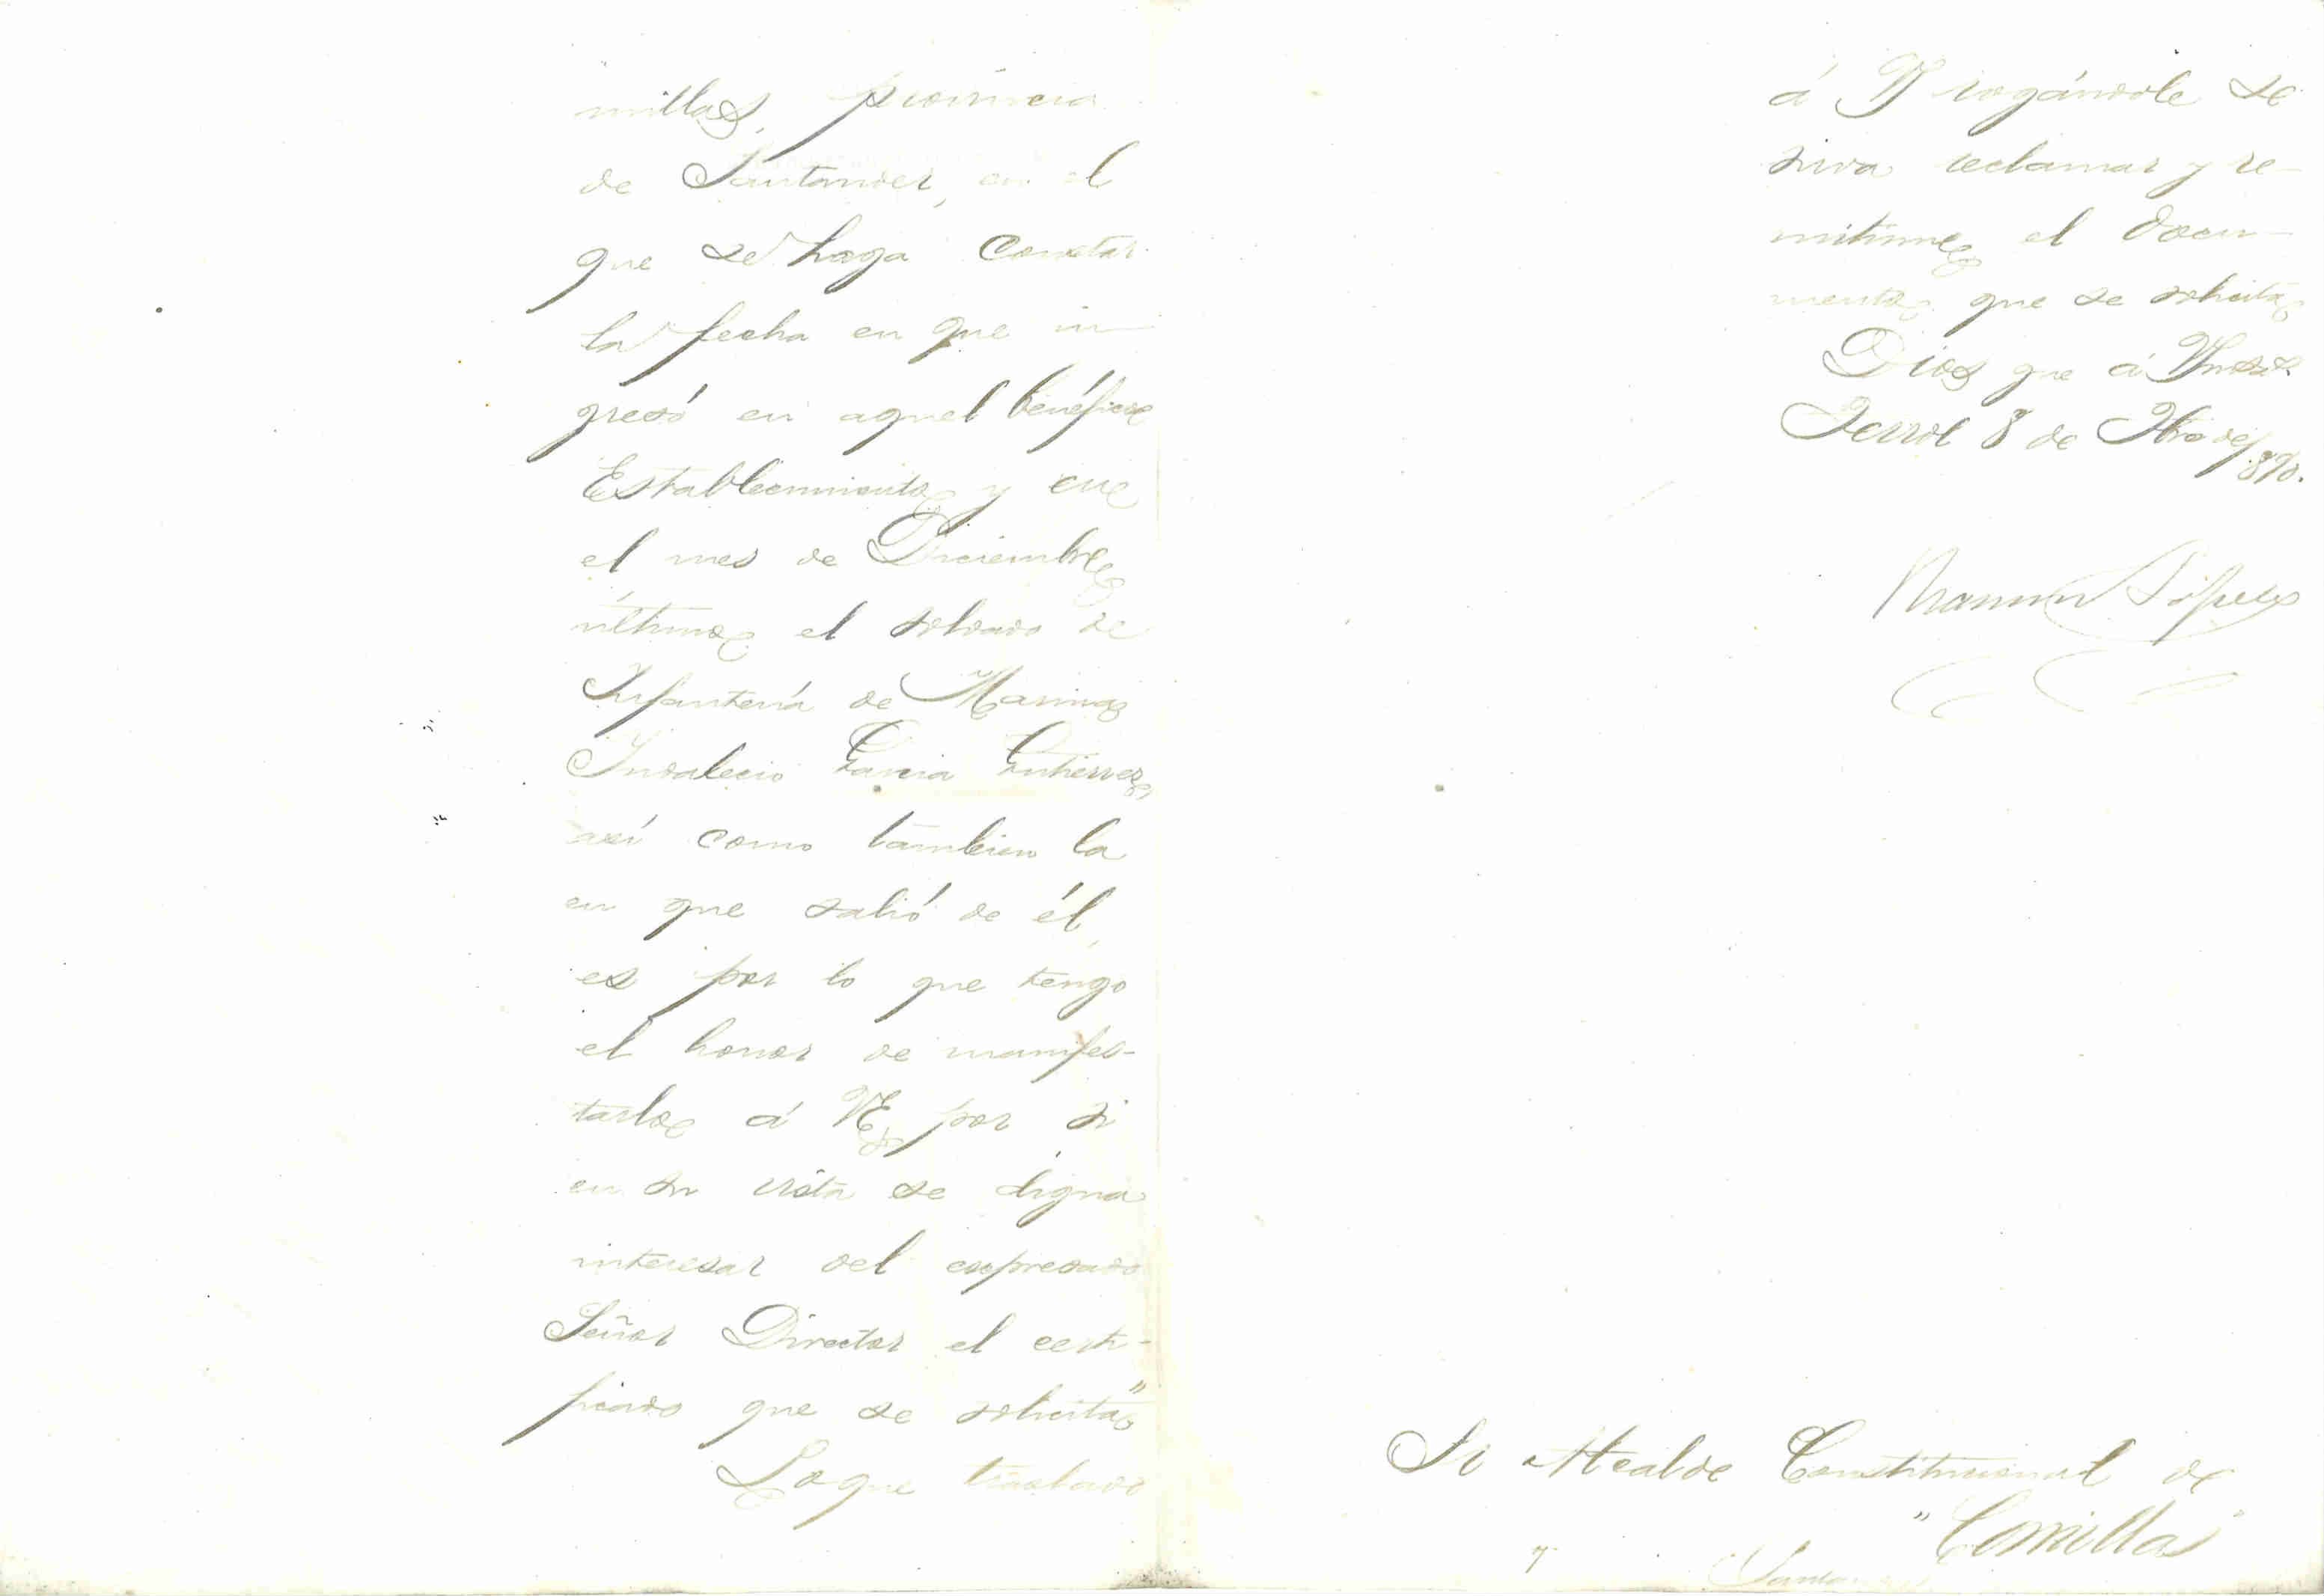 millas, provincia
de Santander, en el
que se haga constar
la fecha en que in-
gresó en aquel benéfico
Establecimiento y en
el mes de Diciembre
último el soldado de
Infantería de Marina
Indalecio Garcia Gutierrez,
así como tambien la
en que salió de él,
es por lo que tengo
el honor de manifes-
tarlo á VE por si
en su vista se digna
interesar del expresado
Señor Director el certi-
ficado que se solicita"
Lo que traslado
á V rogándole se
sirva reclamar y re-
mitirme el docu-
mento que se solicita
Dios gue á V ms as
Ferrol 8 de Fbro de
1890.
Ramon López
Sr Alcalde Constitucional de
"Comillas"